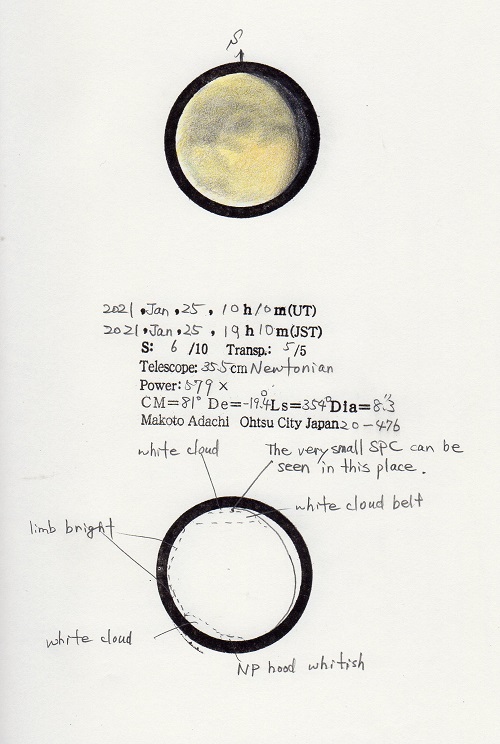 S
2021, Jan, 25, 10h10m(UT)
2021, Jan, 25, 19h10m(JST)
S: 6/10 Transp.: 5/5
Telescope: 35.5cm Newtonian
Power: 579×
CM=81° De=-19.4° Ls=354° Dia=8.″3
Makoto Adachi Ohtsu City Japan 20-476
white cloud
The very small SPC can be
seen in this place.
white cloud belt
limb bright
white cloud
NP hood whitish